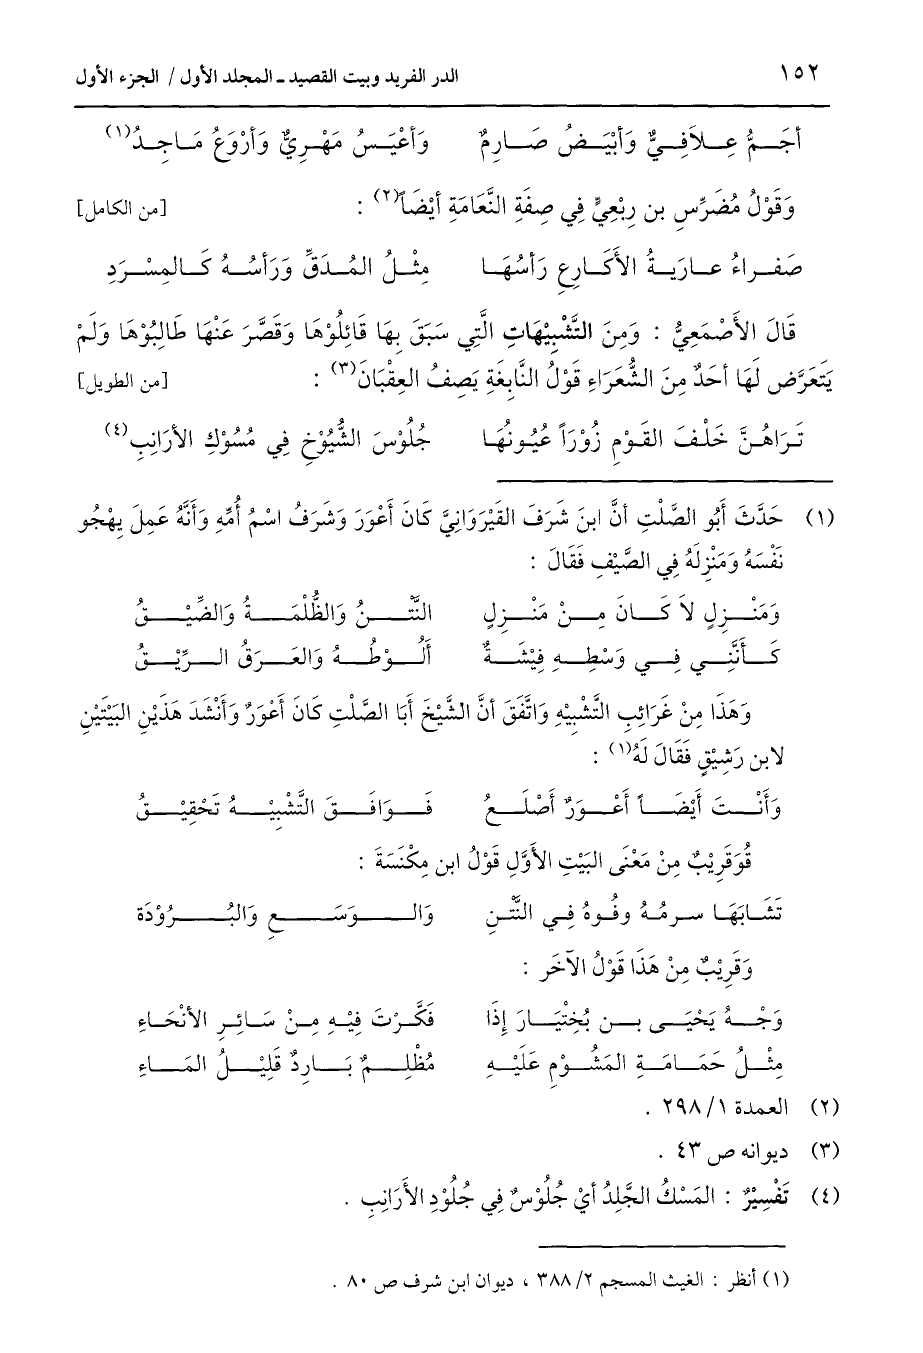 ١٥٢ الدر الفريد وبيت القصيد ـ المجلد الأول / الجزء الأول
أَجَمُّ عِلاَفِيٌّ وَأَبْيَضُ صَارِمٌ وَأَعْيَسُ مَهْرِيٌّ وَأَرْوَعُ مَاجِدُ(١)
وَقَوْلُ مُضَرِّسِ بن رِبْعِيٍّ فِي صِفَةِ النَّعَامَةِ أَيْضَاً(٢) : [من الكامل]
صَفراءُ عارِيَةُ الأَكارِعِ رَأسُهَا مِثْلُ المُدَقِّ وَرَأسُهُ كَالمِسْرَدِ
قَالَ الأَصْمَعِيُّ : وَمِنَ التَّشْبِيْهَاتِ الَّتِي سَبَقَ بِهَا قَائِلُوْهَا وَقَصَّرَ عَنْهَا طَالِبُوْهَا وَلَمْ
يَتَعَرَّض لَهَا أحَدٌ مِنَ الشُّعَرَاءِ قَوْلُ النَّابِغَةِ يَصِفُ العِقْبَانَ(٣) : [من الطويل]
تَرَاهُنَّ خَلْفَ القَوْمِ زُوْرَاً عُيُونُهَا جُلُوْسَ الشُّيُوْخِ فِي مُسُوْكِ الأَرَانِبِ(٤)
(١) حَدَّثَ أَبُو الصَّلْتِ أنَّ ابنَ شَرَفَ القَيْرَوَانِيَّ كَانَ أَعْوَرَ وَشَرَفُ اسْمُ أُمِّهِ وَأَنَّهُ عَمِلَ يِهْجُو
نَفْسَهُ وَمَنْزِلَهُ فِي الصَّيْفِ فَقَالَ :
وَمَنْزِلٍ لاَ كَانَ مِنْ مَنْزِلٍ النَّتْنُ وَالظُّلْمَةُ وَالضِّيْقُ
كَأَنَّنِي فِي وَسْطِهِ فِيْشَةٌ أَلُوْطُهُ وَالعَرَقُ الرِّيْقُ
وَهَذَا مِنْ غَرَائِبِ التَّشْبِيْهِ وَاتَّفَقَ أنَّ الشَّيْخَ أبَا الصَّلْتِ كَانَ أَعْوَرٌ وَأَنْشَدَ هَذَيْنِ البَيْتَيْنِ
لابن رَشِيْقٍ فَقَالَ لَهُ(١) :
وَأَنْتَ أَيْضَاً أَعْوَرٌ أَصْلَعُ فَوَافَقَ التَّشْبِيْهُ تَحْقِيْقُ
قُوَقَرِيْبٌ مِنْ مَعْنَى البَيْتِ الأوَّلِ قَوْلُ ابن مِكْنَسَةَ :
تَشَابَهَا سرمُهُ وفُوهُ فِي النَّتْنِ وَالوَسَعِ وَالبُرُوْدَة
وَقَرِيْبٌ مِنْ هَذَا قَوْلُ الآخَرِ :
وَجْهُ يَحْيَى بن بُخْتِيَارَ إِذَا فَكَّرْتَ فِيْهِ مِنْ سَائِرِ الأَنْحَاءِ
مِثْلُ حَمَامَةِ المَشُوْمِ عَلَيْهِ مُظْلِمٌ بَارِدٌ قَلِيْلُ المَاءِ
(٢) العمدة ١/ ٢٩٨ .
(٣) ديوانه ص ٤٣ .
(٤) تَفْسِيْرٌ : المَسْكُ الجَّلِدُ أيْ جُلُوْسٌ فِي جُلُوْدِ الأَرَانِبِ .
(١) أنظر : الغيث المسجم ٢/ ٣٨٨ ، ديوان ابن شرف ص ٨٠ .